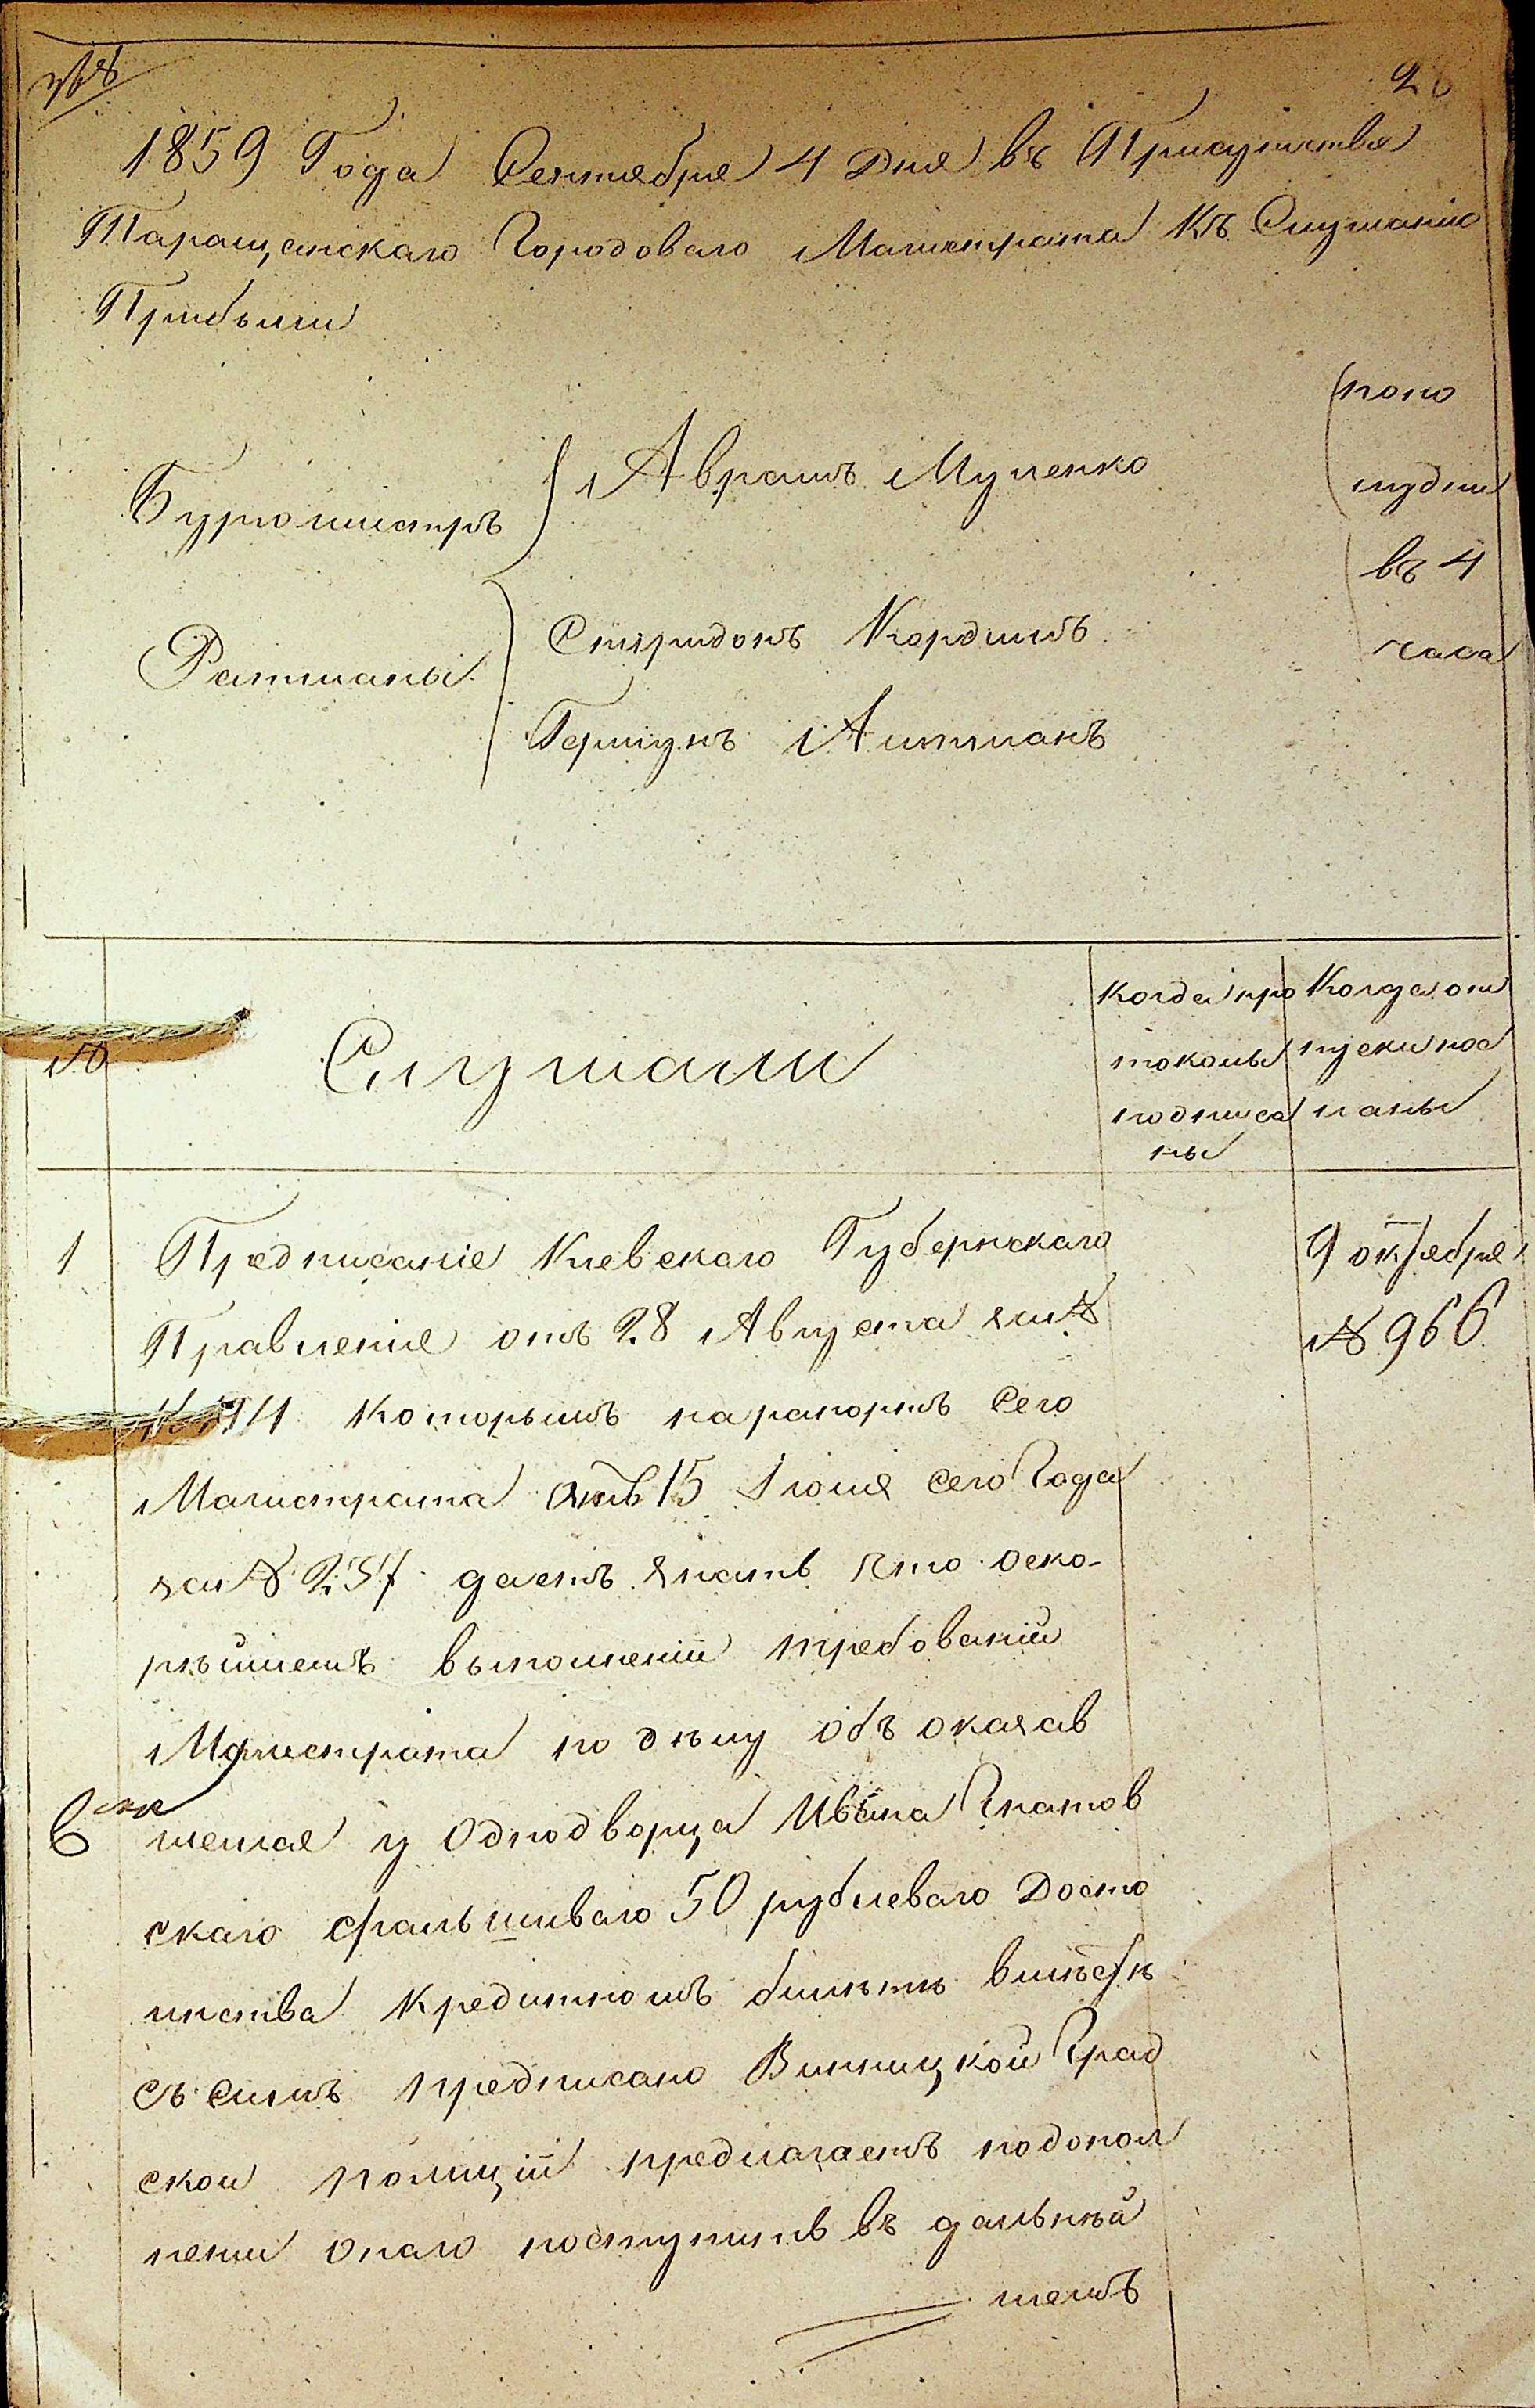 28
1859 Года Сентября 4 Дня въ Присутствіе
Таращанскаго Городоваго Магистрата Къ Слушанію
Прибыли
Бургомистръ
Аврамъ Муленко
Ратманы
Спиридонъ Кордишъ
Гершунъ Литманъ
попо
лудни
въ 4
часа
№
Слушали
Когда про
токолы
подписа
ны
Когда от
пуски пос
ланы
1
Предписаніе Кіевскаго Губернскаго
Правленія отъ 28 Августа за №
которымъ нарапортъ Сего
Магистрата отъ 15 Іюля сего Года
за № 237 даетъ знать что оско-
рѣйшемъ выполненіи требованій
Магистрата по дѣлу объ оказав
шемся у Однодворца Ивана Гнатов
скаго фальшиваго 50 рублеваго Досто
инства Кредитномъ билѣтѣ вмѣстѣ
съ симъ предписано Винницкой Град
ской полиціи предлагаетъ подопол
неніи онаго поступить въ дальнѣй
шемъ
9 октября
№ 966